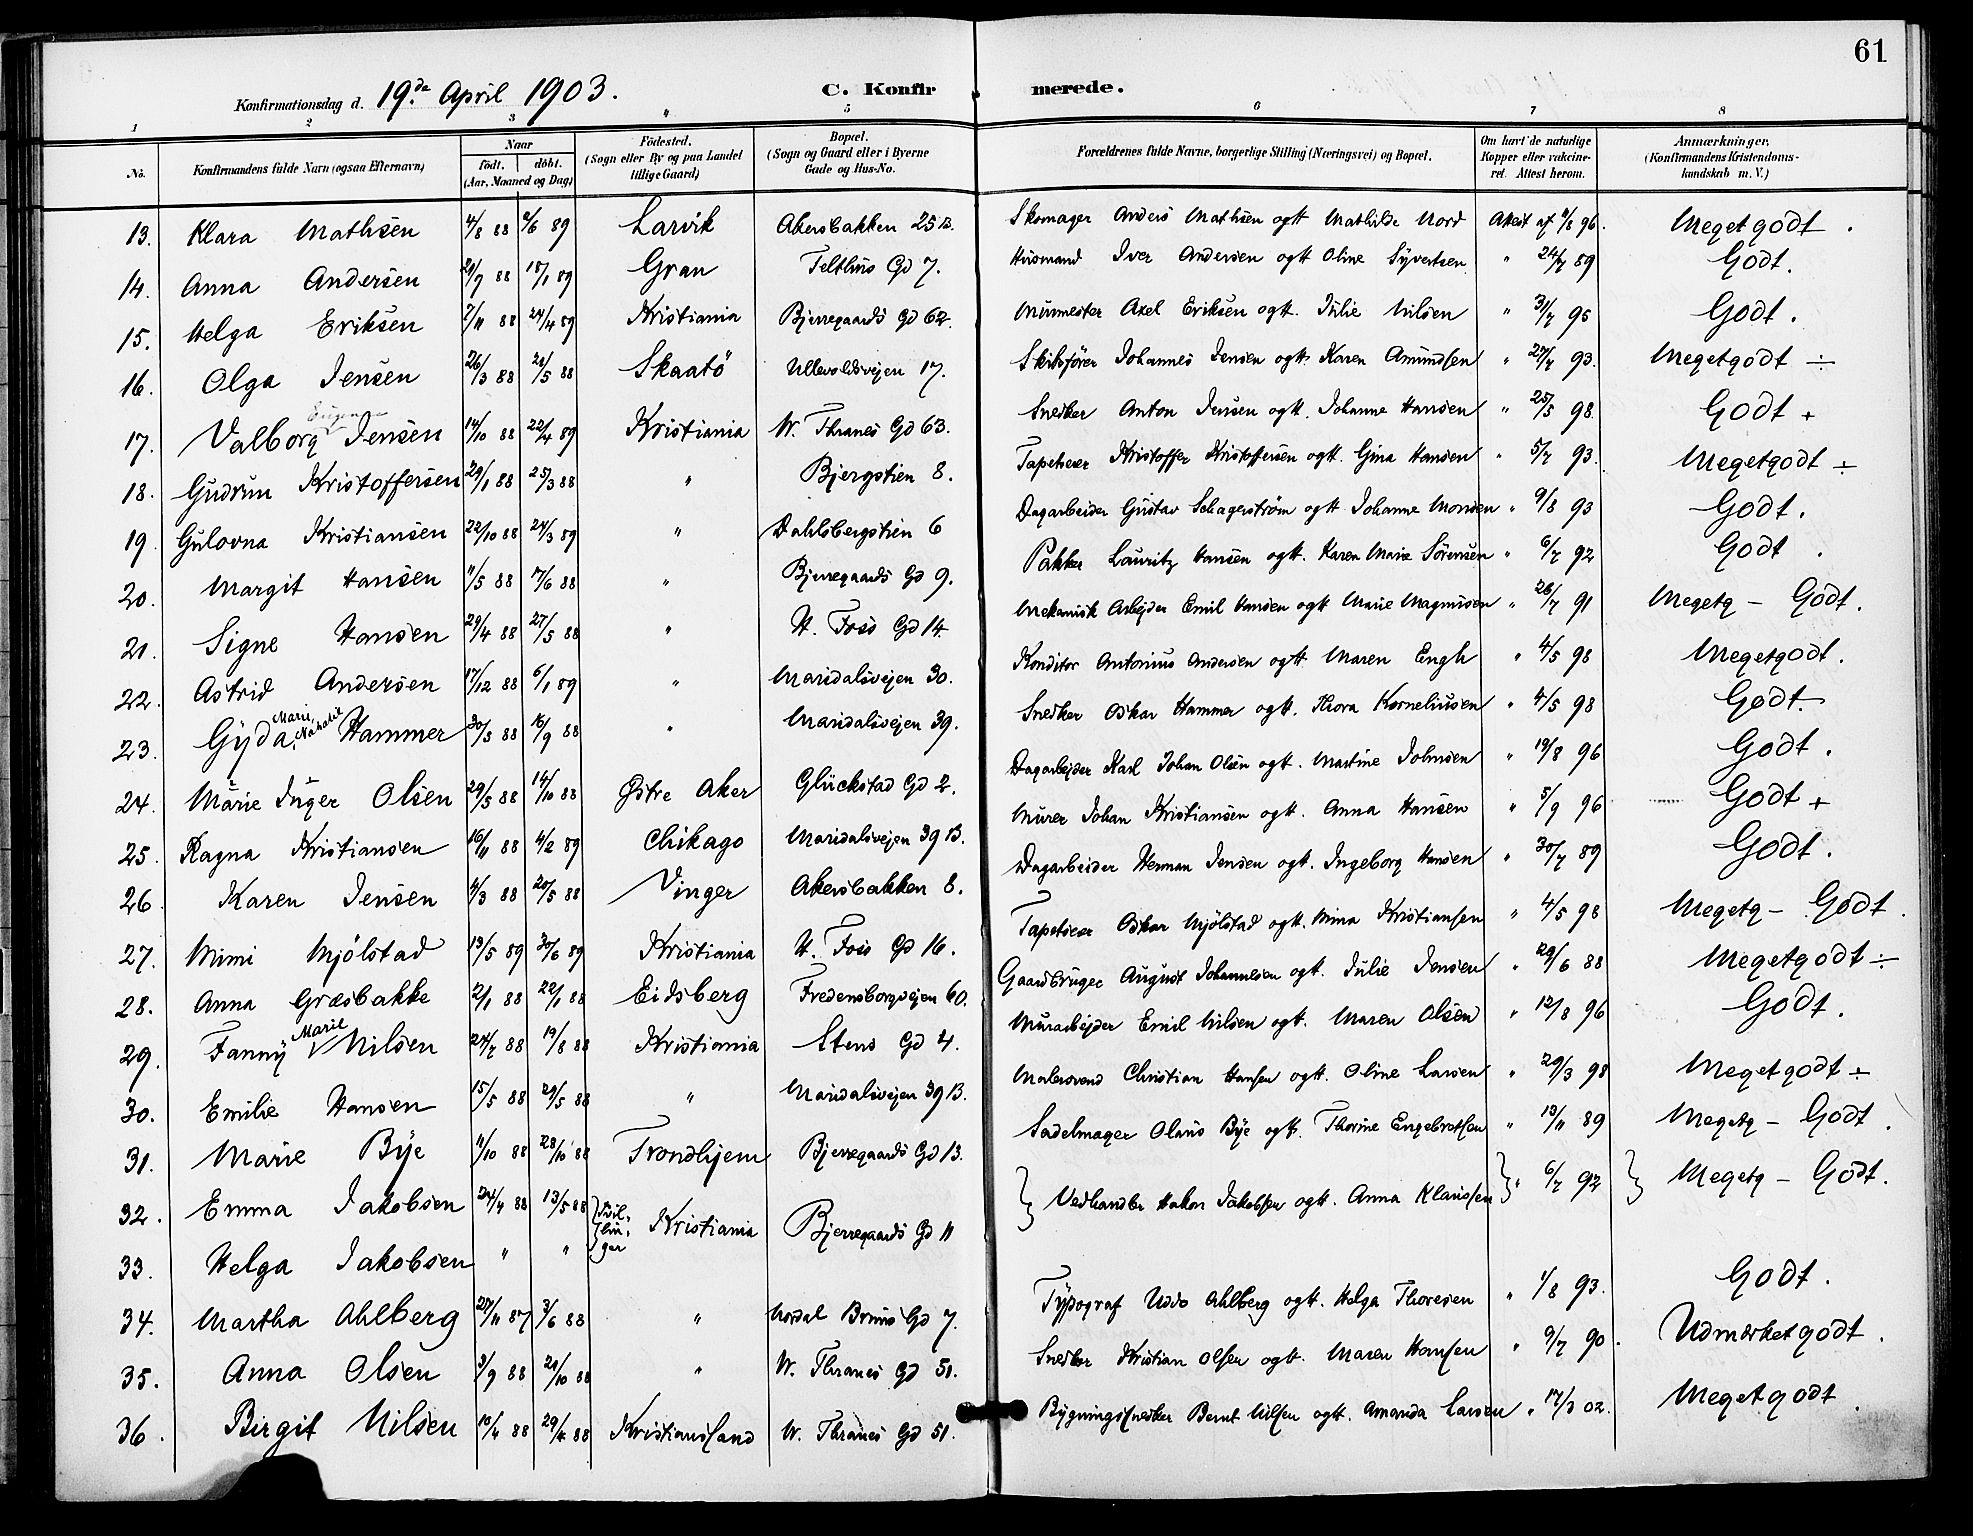 61
Konfirmationsdag d. 19.de April 1903. C. Konfirmerede.
1 2 3 4 5 6 7 8
No. Konfirmandens fulde Navn (ogsaa Efternavn) Naar födt. döbt. (Aar, Maaned og Dag) Födested. (Sogn eller By og paa Landet tillige Gaard) Bopæl. (Sogn og Gaard eller i Byerne Gade og Hus-No. Forældrenes fulde Navne, borgerlige Stilling (Næringsvei) og Bopæl. Om havt de naturlige Kopper eller vakcineret. Attest herom. Anmærkninger. (Konfirmandens Kristendomskundskab m. V.)
13. Klara Mathsen 4/8 88 2/6 89 Larvik Akersbakken 25 B. Skomager Anders Mathsen ogtt Mathilde Nord Attest af 11/8 96. Meget godt.
14. Anna Andersen 21/7 88 18/1 89 Gran Telthus Gd 7. Husmand Iver Andersen ogtt Oline Syvertsen " 24/7 89 Godt.
15. Helga Eriksen 7/11 88 24/4 89 Kristiania Bjerregaards Gd 62. Murmester Axel Eriksen ogtt. Julie Nilsen " 31/7 95 Godt.
16. Olga Jensen 26/3 88 21/5 88 Skaatö Ullevoldsvejen 17. Skibsfører Johannes Jensen ogtt. Karen Amundsen " 27/7 93. Megetgodt ÷
17. Valborg Jensen 14/10 88 22/4 89 Kristiania W. Thranes Gd 63. Snedker Anton Jensen ogtt. Johanne Hansen " 25/5 98. Godt +
18. Gudrun Kristoffersen 29/1 88 25/3 88 " Bjergstien 8. Tapetserer Kristoffer Kristoffersen ogtt. Gina Hansen " 5/7 93. Megetgodt ÷
19. Gulovna Kristiansen 22/10 88 24/3 89 " Dahlsbergstien 6 Dagarbeider Gustav Schagerström ogtt Johanne Monsen " 9/8 93 Godt.
20. Margit Hansen 11/5 88 17/6 88 " Bjerregaards Gd 9. Pakker Lauritz Hansen ogtt. Karen Marie Sörensen " 6/7 92 Godt.
21. Signe Hansen 29/4 88 27/5 88 " N. Foss Gd 14. Mekanisk Arbejder Emil Hansen ogtt Marie Magnusen " 26/7 91 Megetg - Godt.
22. Astrid Andersen 17/12 88 6/1 89 " Maridalsvejen 30. Konditor Antonius Andersen ogtt Maren Engh " 4/5 98 Megetgodt.
23. Gyda Marie Nathalie Hammer 30/5 88 16/9 88 " Maridalsvejen 39. Snedker Oskar Hammer ogtt. Thora Korneliusen " 4/5 98 Godt.
24. Marie Inger Olsen 29/5 88 14/10 88 Østre Aker Glückstad Gd 2. Dagarbejder Karl Johan Olsen ogtt. Martine Johnsen " 19/8 96 Godt.
25. Ragna Kristiansen 16/11 88 4/2 89 Chikago Maridalsvejen 39 B. Murer Johan Kristiansen ogtt. Anna Hansen " 5/9 96 Godt +
26. Karen Jensen 4/3 88 20/5 88 Vinger Akersbakken 8. Dagarbeider Herman Jensen ogtt. Ingeborg Hansen " 30/7 89 Godt.
27. Mimi Mjölstad 13/5 89 30/6 89 Kristiania N. Foss Gd 16. Tapetserer Oskar Mjölstad ogtt. Mina Kristiansen " 4/5 98 Megetg - Godt.
28. Anna Græsbakke 2/1 88 22/1 88 Eidsberg Fredensborgvejen 60. Gaardbruger August Johannesen ogtt. Julie Jensen " 29/6 88 Megetgodt ÷
29. Fanny Marie Nilsen 24/7 88 19/8 88 Kristiania Stens Gd 4. Murarbejder Emil Nilsen ogtt. Maren Olsen " 12/8 96 Godt.
30. Emilie Hansen 15/5 88 29/5 88 " Maridalsvejen 39 B. Malersvend Christian Hansen ogtt. Oline Larsen " 29/3 98 Megetgodt ÷
31. Marie Bye 11/10 88 28/10 88 Trondhjem Bjerregaards Gd 13. Sadelmager Olaus Bye ogtt. Thorine Engebretsen " 13/11 89 Megetg - Godt.
32. Emma Jakobsen 24/4 88 13/5 88 Tvillinger Kristiania Bjerregaards Gd 11 Vedhandler Hakon Jakobsen ogtt. Anna Klaussen " 6/7 92 Megetg - Godt.
33. Helga Jakobsen " "
34. Martha Ahlberg 27/11 87 3/6 88 " Nordal Bruns Gd 7. Typograf Uddo Ahlberg ogtt. Helga Thoresen " 1/8 93. Godt.
35. Anna Olsen 3/9 88 21/10 88 " W. Thranes Gd 51. Snedker Kristian Olsen ogtt. Maren Hansen " 9/7 90. Udmærketgodt.
36. Birgit Nilsen 10/4 88 29/4 88 Kristianssand W. Thranes Gd 51. Bygningssnedker Bernt Nilsen ogtt. Amanda Larsen " 17/3 02. Megetgodt.